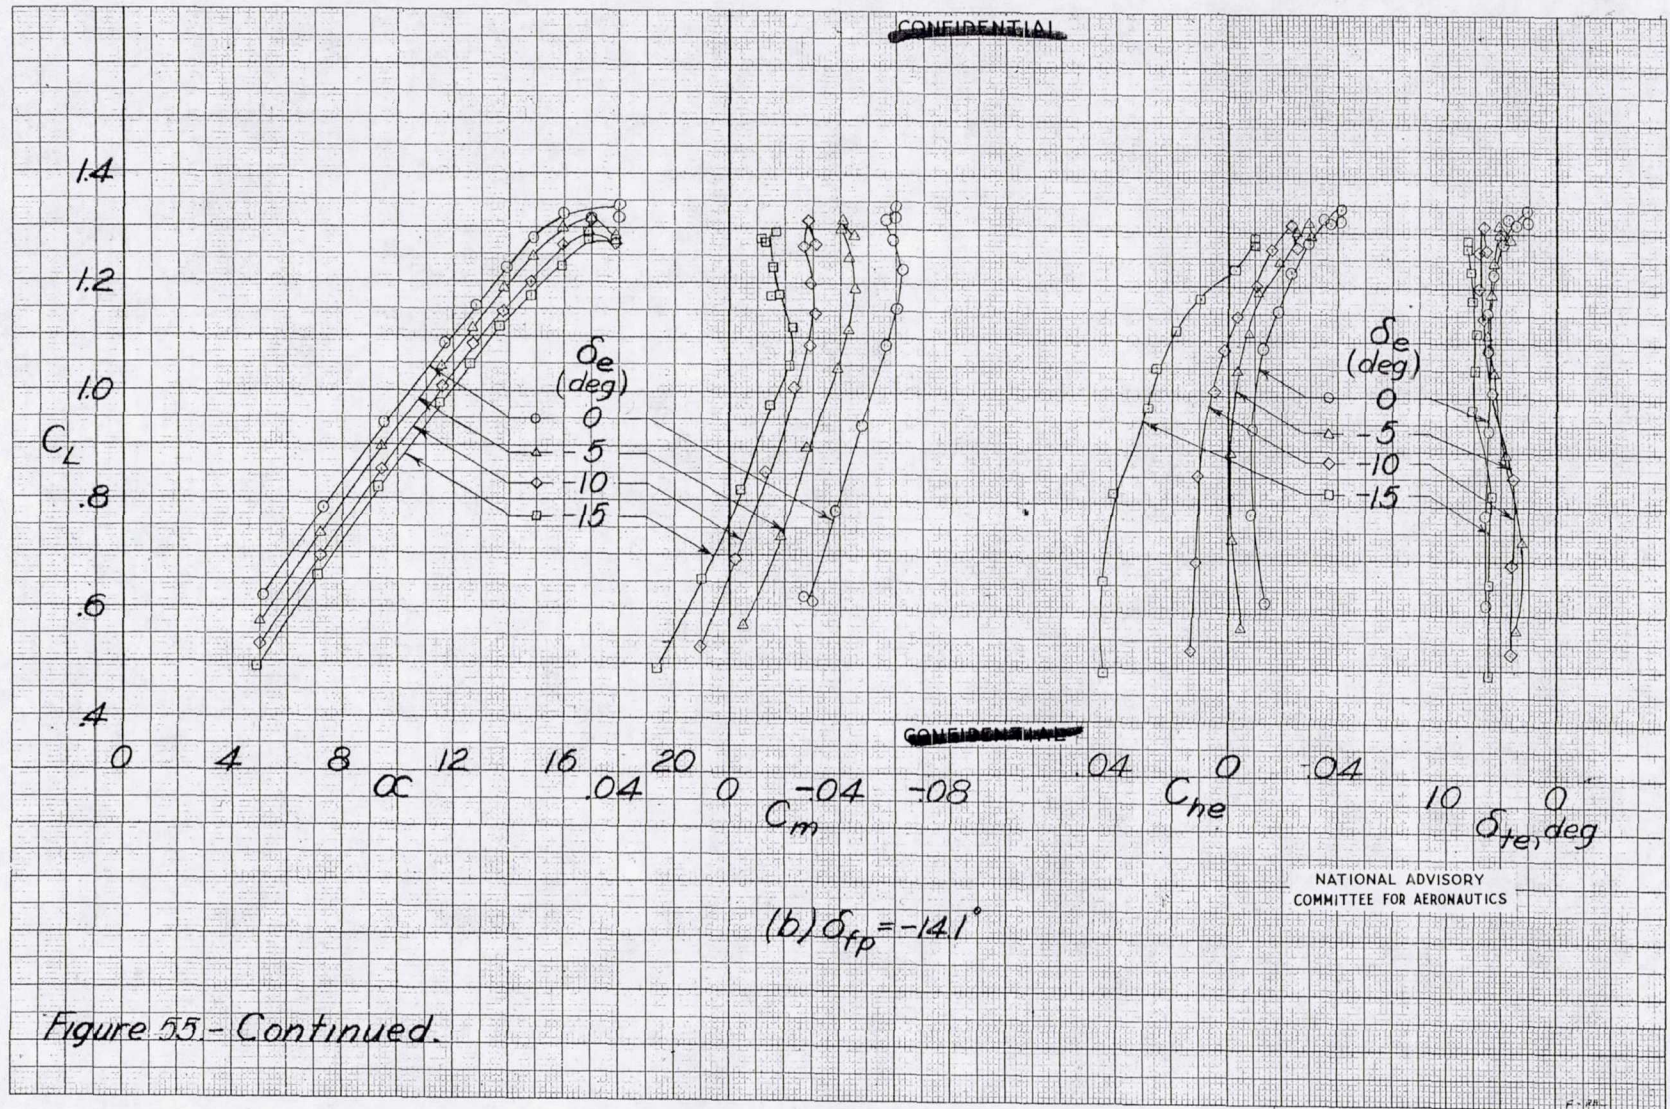 CONFIDENTIAL
1.4
1.2
1.0
C_L
.8
.6
.4
δ_e
(deg)
0
-5
-10
-15
δ_e
(deg)
0
-5
-10
-15
CONFIDENTIAL
0 4 8 12 16 20
α
.04 0 -.04 -.08
C_m
.04 0 -.04
C_he
10 0
δ_te, deg
NATIONAL ADVISORY
COMMITTEE FOR AERONAUTICS
(b) δ_fp = -14.1°
Figure 55.- Continued.